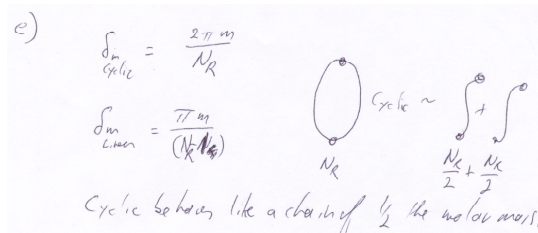 e)
δm cyclic = 2πm / NR
δm Linear = πm / (NR)
Cyclic ~ +
NR
NR/2 + NR/2
Cyclic behaves like a chain of 1/2 the molar mass.